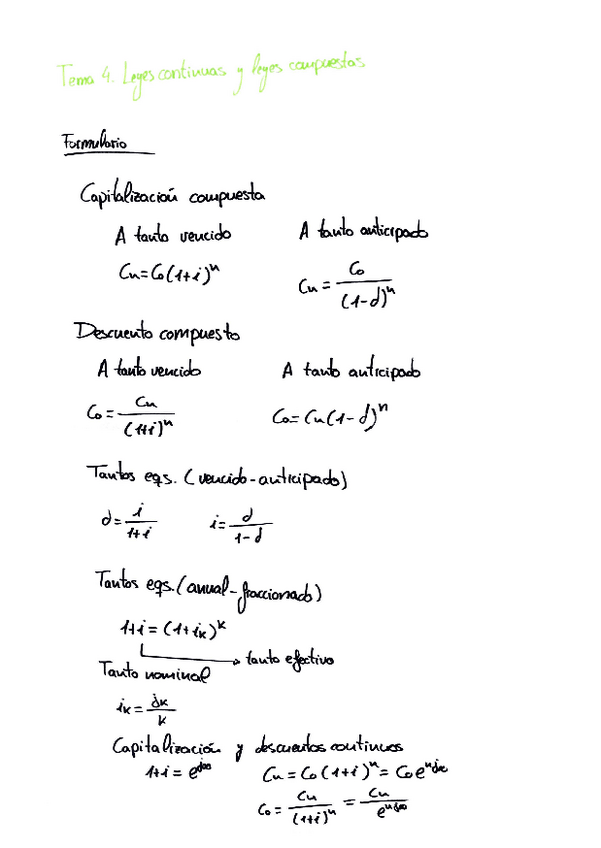 Tema 4. Leyes continuas y leyes compuestas
Formulario
Capitalización compuesta
A tanto vencido
A tanto anticipado
Cn = C₀(1+i)ⁿ
Cn = C₀/(1-d)ⁿ
Descuento compuesto
A tanto vencido
A tanto anticipado
C₀ = Cn/(1+i)ⁿ
C₀ = Cn(1-d)ⁿ
Tantos eqs. (vencido-anticipado)
d = i/1+i
i = d/1-d
Tantos eqs. (anual-fraccionado)
1+i = (1+iₖ)ᵏ
tanto efectivo
Tanto nominal
iₖ = jₖ/k
Capitalización y descuentos continuos
1+i = e^j∞
Cn = C₀(1+i)ⁿ = C₀e^nj∞
C₀ = Cn/(1+i)ⁿ = Cn/e^nj∞